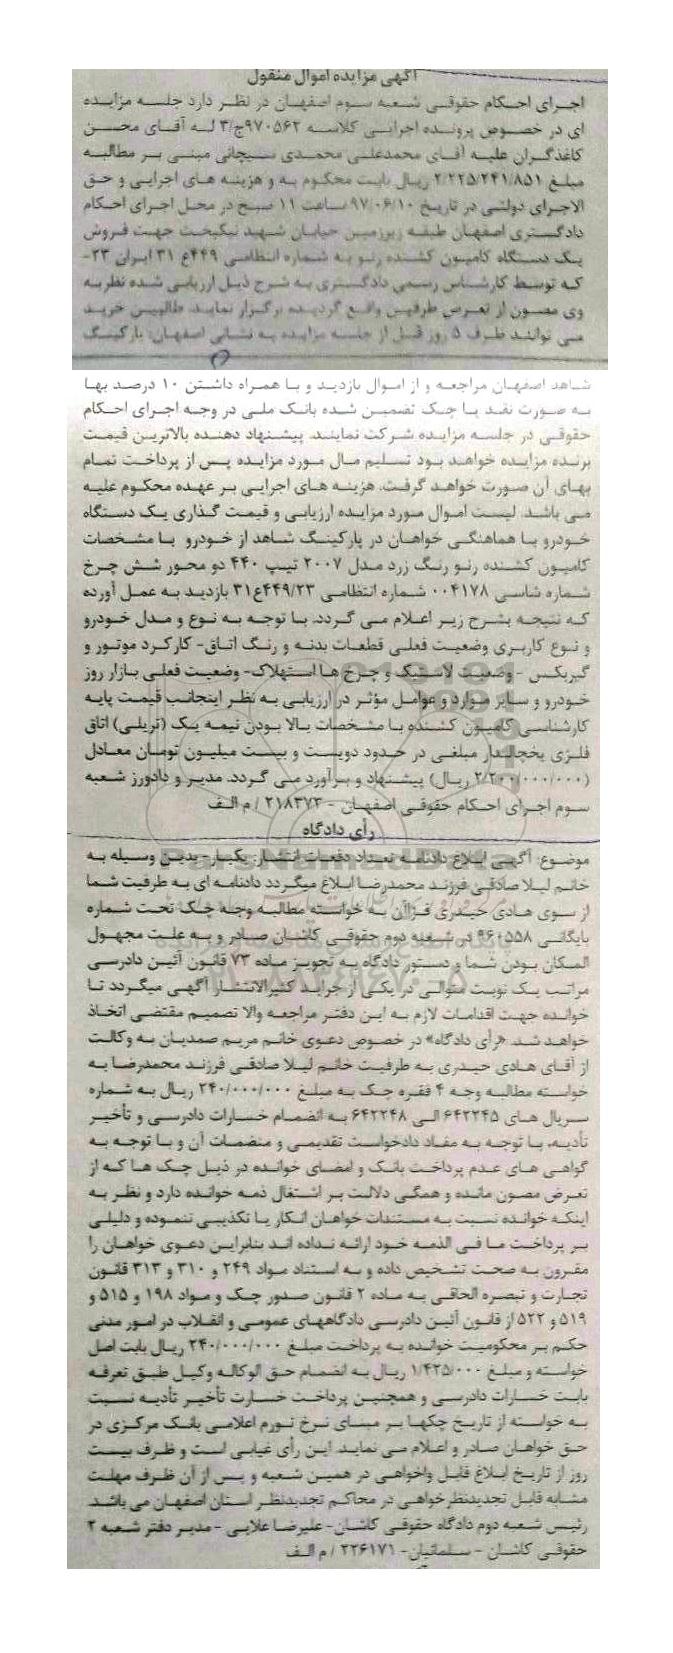 آگهی مزایده اموال منقول
اجرای احکام حقوقی شعبه سوم اصفهان در نظر دارد جلسه مزایده
ای در خصوص پرونده اجرایی کلاسه ۹۷۰۵۶۲ج/۳ له آقای محسن
کاغذگران علیه آقای محمدعلی محمدی سیچانی مبنی بر مطالبه
مبلغ ۲/۲۲۵/۲۴۱/۸۵۱ ریال بابت محکوم به و هزینه های اجرایی و حق
الاجرای دولتی در تاریخ ۹۷/۰۶/۱۰ ساعت ۱۱ صبح در محل اجرای احکام
دادگستری اصفهان طبقه زیرزمین خیابان شهید نیکبخت جهت فروش
یک دستگاه کامیون کشنده رنو به شماره انتظامی ۴۴۹ع ۳۱ ایران ۲۳-
که توسط کارشناس رسمی دادگستری به شرح ذیل ارزیابی شده نظریه
وی مصون از تعرض طرفین واقع گردیده برگزار نماید. طالبین خرید
می توانند ظرف ۵ روز قبل از جلسه مزایده به نشانی اصفهان: پارکینگ
شاهد اصفهان مراجعه و از اموال بازدید و با همراه داشتن ۱۰ درصد بها
به صورت نقد یا چک تضمین شده بانک ملی در وجه اجرای احکام
حقوقی در جلسه مزایده شرکت نمایند. پیشنهاد دهنده بالاترین قیمت
برنده مزایده خواهد بود تسلیم مال مورد مزایده پس از پرداخت تمام
بهای آن صورت خواهد گرفت. هزینه های اجرایی بر عهده محکوم علیه
می باشد. لیست اموال مورد مزایده ارزیابی و قیمت گذاری یک دستگاه
خودرو با هماهنگی خواهان در پارکینگ شاهد از خودرو با مشخصات
کامیون کشنده رنو رنگ زرد مدل ۲۰۰۷ تیپ ۴۴۰ دو محور شش چرخ
شماره شاسی ۰۰۴۱۷۸ شماره انتظامی ۴۴۹/۲۳ع۳۱ بازدید به عمل آورده
که نتیجه بشرح زیر اعلام می گردد. با توجه به نوع و مدل خودرو
و نوع کاربری وضعیت فعلی قطعات بدنه و رنگ اتاق- کارکرد موتور و
گیربکس - وضعیت لاستیک و چرخ ها استهلاک- وضعیت فعلی بازار روز
خودرو و سایر موارد و عوامل مؤثر در ارزیابی به نظر اینجانب قیمت پایه
کارشناسی کامیون کشنده با مشخصات بالا بودن نیمه یک (تریلی) اتاق
فلزی یخچالدار مبلغی در حدود دویست و بیست میلیون تومان معادل
(۲/۲۰۰/۰۰۰/۰۰۰ ریال) پیشنهاد و برآورد می گردد. مدیر و دادورز شعبه
سوم اجرای احکام حقوقی اصفهان - ۲۱۸۳۷۳ / م الف
رأی دادگاه
موضوع: آگهی ابلاغ دادنامه تعداد دفعات انتشار: یکبار- بدین وسیله به
خانم لیلا صادقی فرزند محمدرضا ابلاغ میگردد دادنامه ای به طرفیت شما
از سوی هادی حیدری قزاآن به خواسته مطالبه وجه چک تحت شماره
بایگانی ۹۶۰۵۵۸ در شعبه دوم حقوقی کاشان صادر و به علت مجهول
المکان بودن شما و دستور دادگاه به تجویز ماده ۷۳ قانون آئین دادرسی
مراتب یک نوبت متوالی در یکی از جراید کثیرالانتشار آگهی میگردد تا
خوانده جهت اقدامات لازم به این دفتر مراجعه والا تصمیم مقتضی اتخاذ
خواهد شد. «رأی دادگاه» در خصوص دعوی خانم مریم صمدیان به وکالت
از آقای هادی حیدری به طرفیت خانم لیلا صادقی فرزند محمدرضا به
خواسته مطالبه وجه ۴ فقره چک به مبلغ ۲۴۰/۰۰۰/۰۰۰ ریال به شماره
سریال های ۶۴۲۲۴۵ الی ۶۴۲۲۴۸ به انضمام خسارات دادرسی و تأخیر
تأدیه، با توجه به مفاد دادخواست تقدیمی و منضمات آن و با توجه به
گواهی های عدم پرداخت بانک و امضای خوانده در ذیل چک ها که از
تعرض مصون مانده و همگی دلالت بر اشتغال ذمه خوانده دارد و نظر به
اینکه خوانده نسبت به مستندات خواهان انکار یا تکذیبی ننموده و دلیلی
بر پرداخت ما فی الذمه خود ارائه نداده اند بنابراین دعوی خواهان را
مقرون به صحت تشخیص داده و به استناد مواد ۲۴۹ و ۳۱۰ و ۳۱۳ قانون
تجارت و تبصره الحاقی به ماده ۲ قانون صدور چک و مواد ۱۹۸ و ۵۱۵ و
۵۱۹ و ۵۲۲ از قانون آئین دادرسی دادگاههای عمومی و انقلاب در امور مدنی
حکم بر محکومیت خوانده به پرداخت مبلغ ۲۴۰/۰۰۰/۰۰۰ ریال بابت اصل
خواسته و مبلغ ۱/۴۲۵/۰۰۰ ریال به انضمام حق الوکاله وکیل طبق تعرفه
بابت خسارات دادرسی و همچنین پرداخت خسارت تأخیر تأدیه نسبت
به خواسته از تاریخ چکها بر مبنای نرخ تورم اعلامی بانک مرکزی در
حق خواهان صادر و اعلام می نماید. این رأی غیابی است و ظرف بیست
روز از تاریخ ابلاغ قابل واخواهی در همین شعبه و پس از آن ظرف مهلت
مشابه قابل تجدیدنظرخواهی در محاکم تجدیدنظر استان اصفهان می باشد.
رئیس شعبه دوم دادگاه حقوقی کاشان- علیرضا علایی - مدیر دفتر شعبه ۲
حقوقی کاشان - سلمانیان- ۲۲۶۱۷۱ / م الف